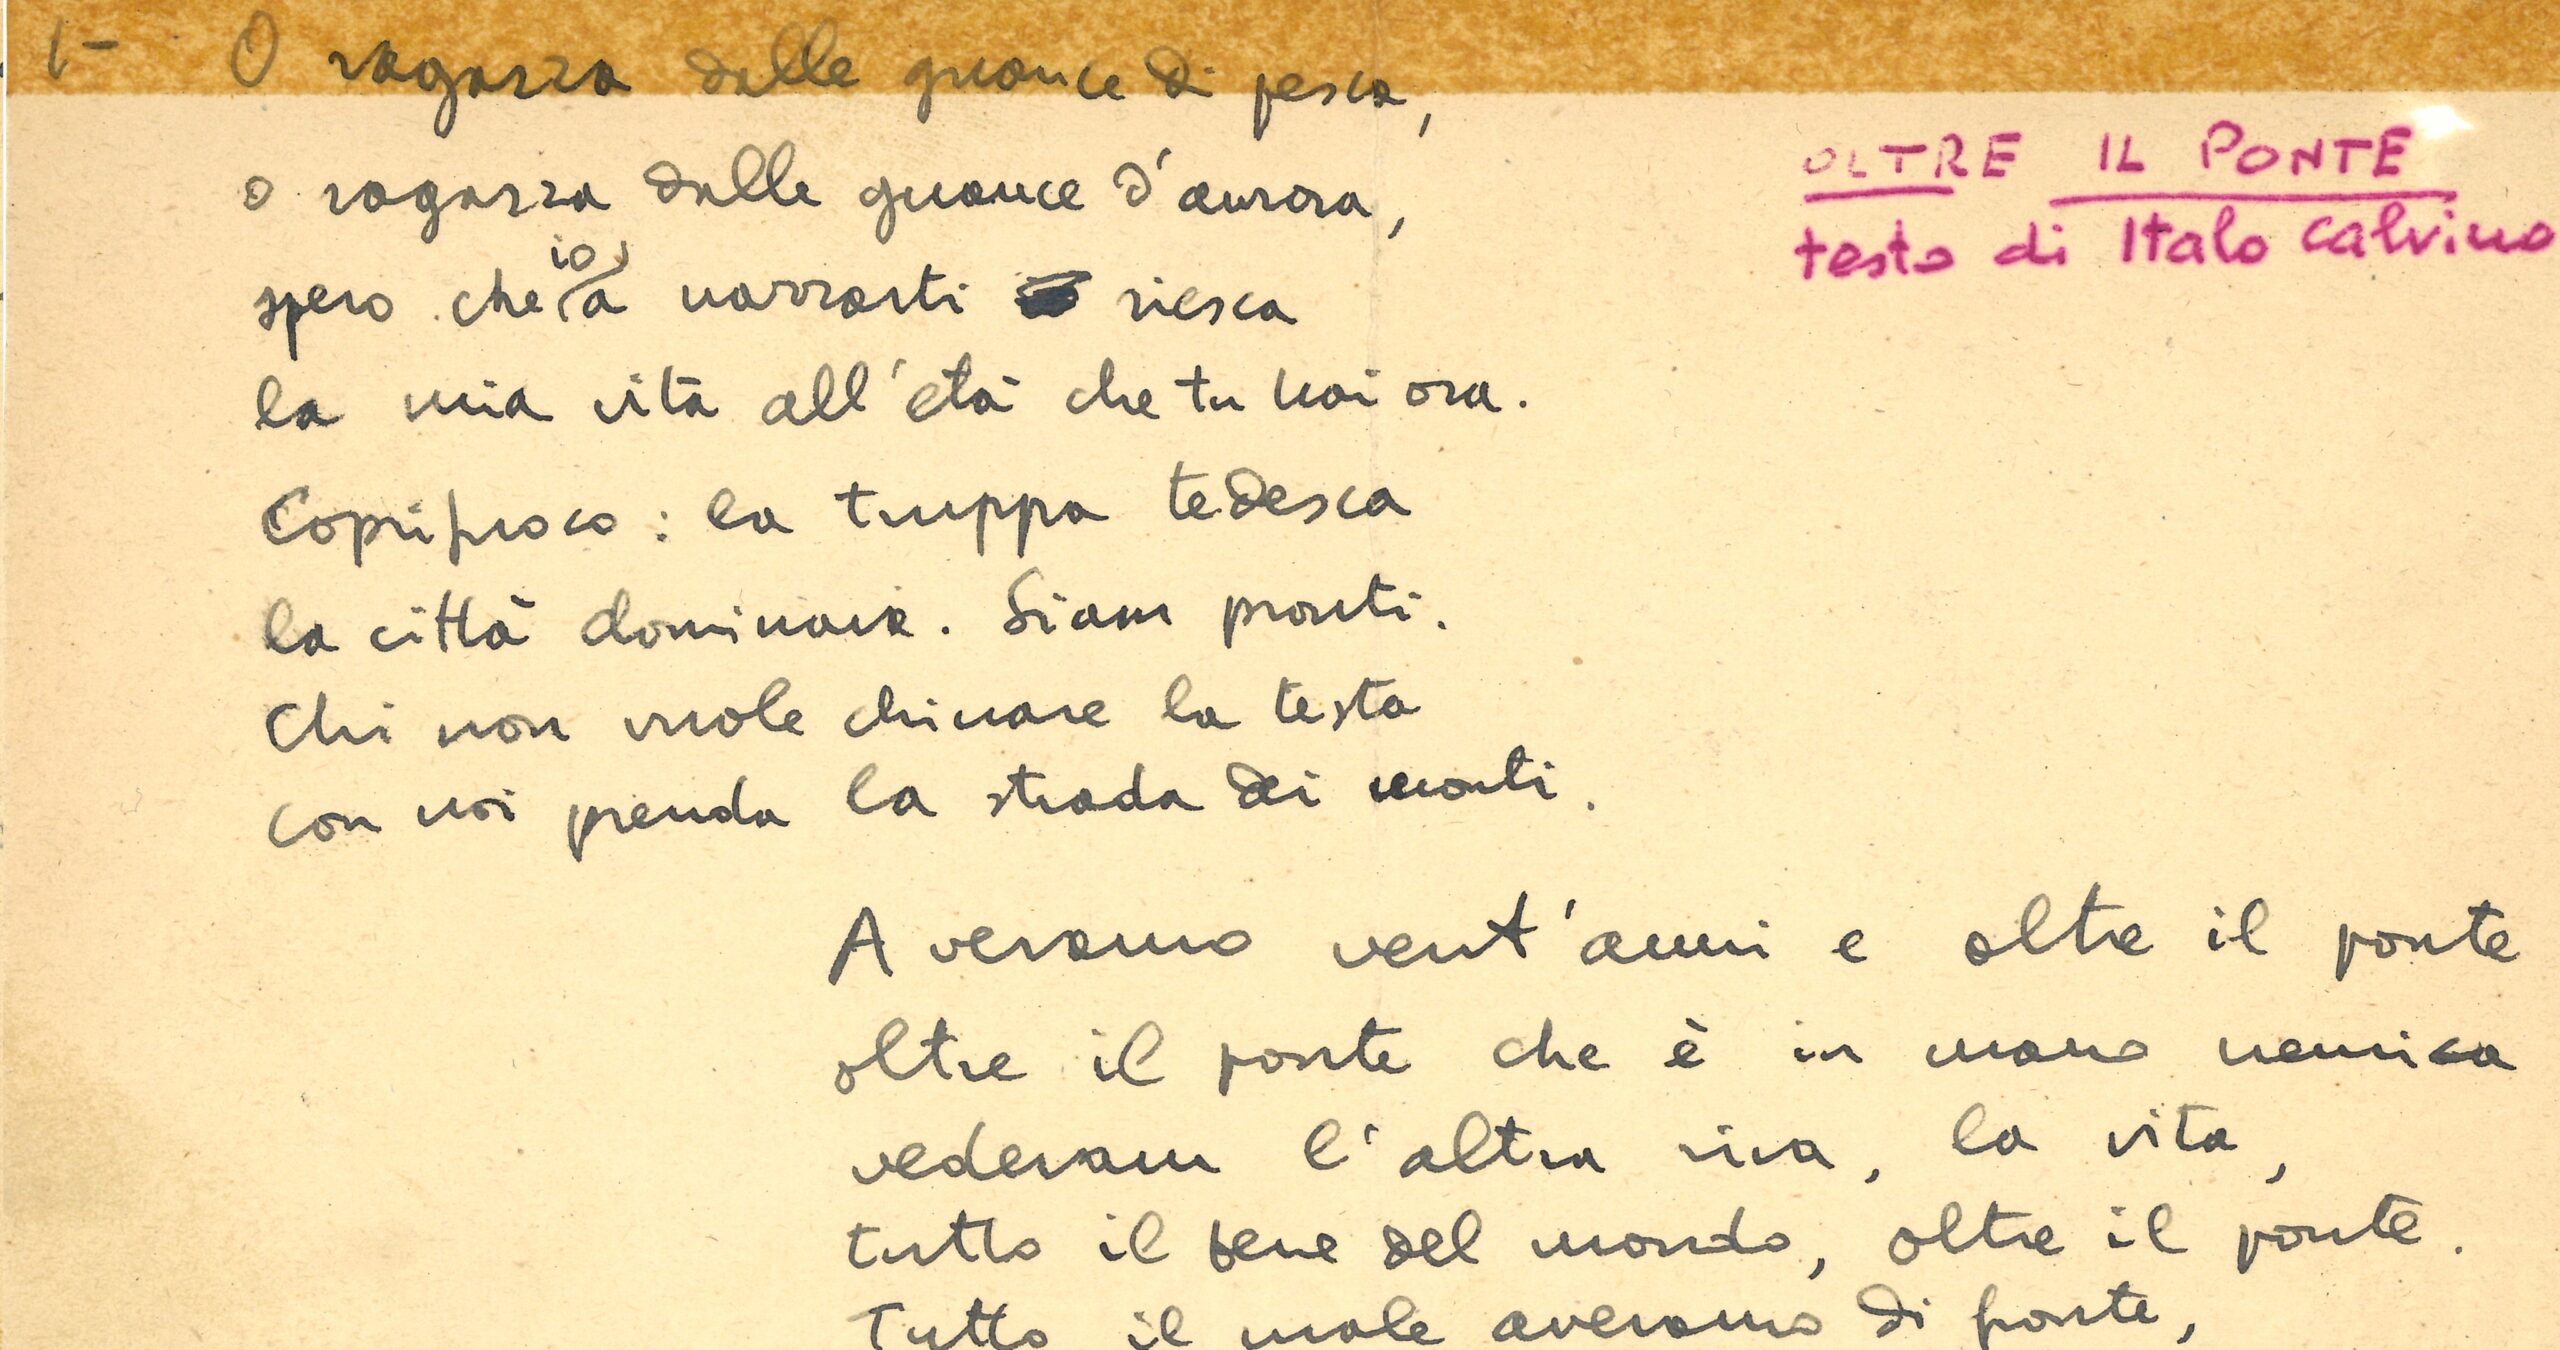 1- O ragazza dalle guance di pesca,
o ragazza dalle guance d'aurora,
OLTRE IL PONTE
testo di Italo Calvino
spero che io a narrarti riesca
la mia vita all'età che tu hai ora.
Coprifuoco: la truppa tedesca
la città dominava. Siam pronti.
Chi non vuole chinare la testa
con noi prenda la strada dei monti.
Avevamo vent'anni e oltre il ponte
oltre il ponte che è in mano nemica
vedevam l'altra riva, la vita,
tutto il bene del mondo, oltre il ponte.
Tutto il male avevamo di fronte,